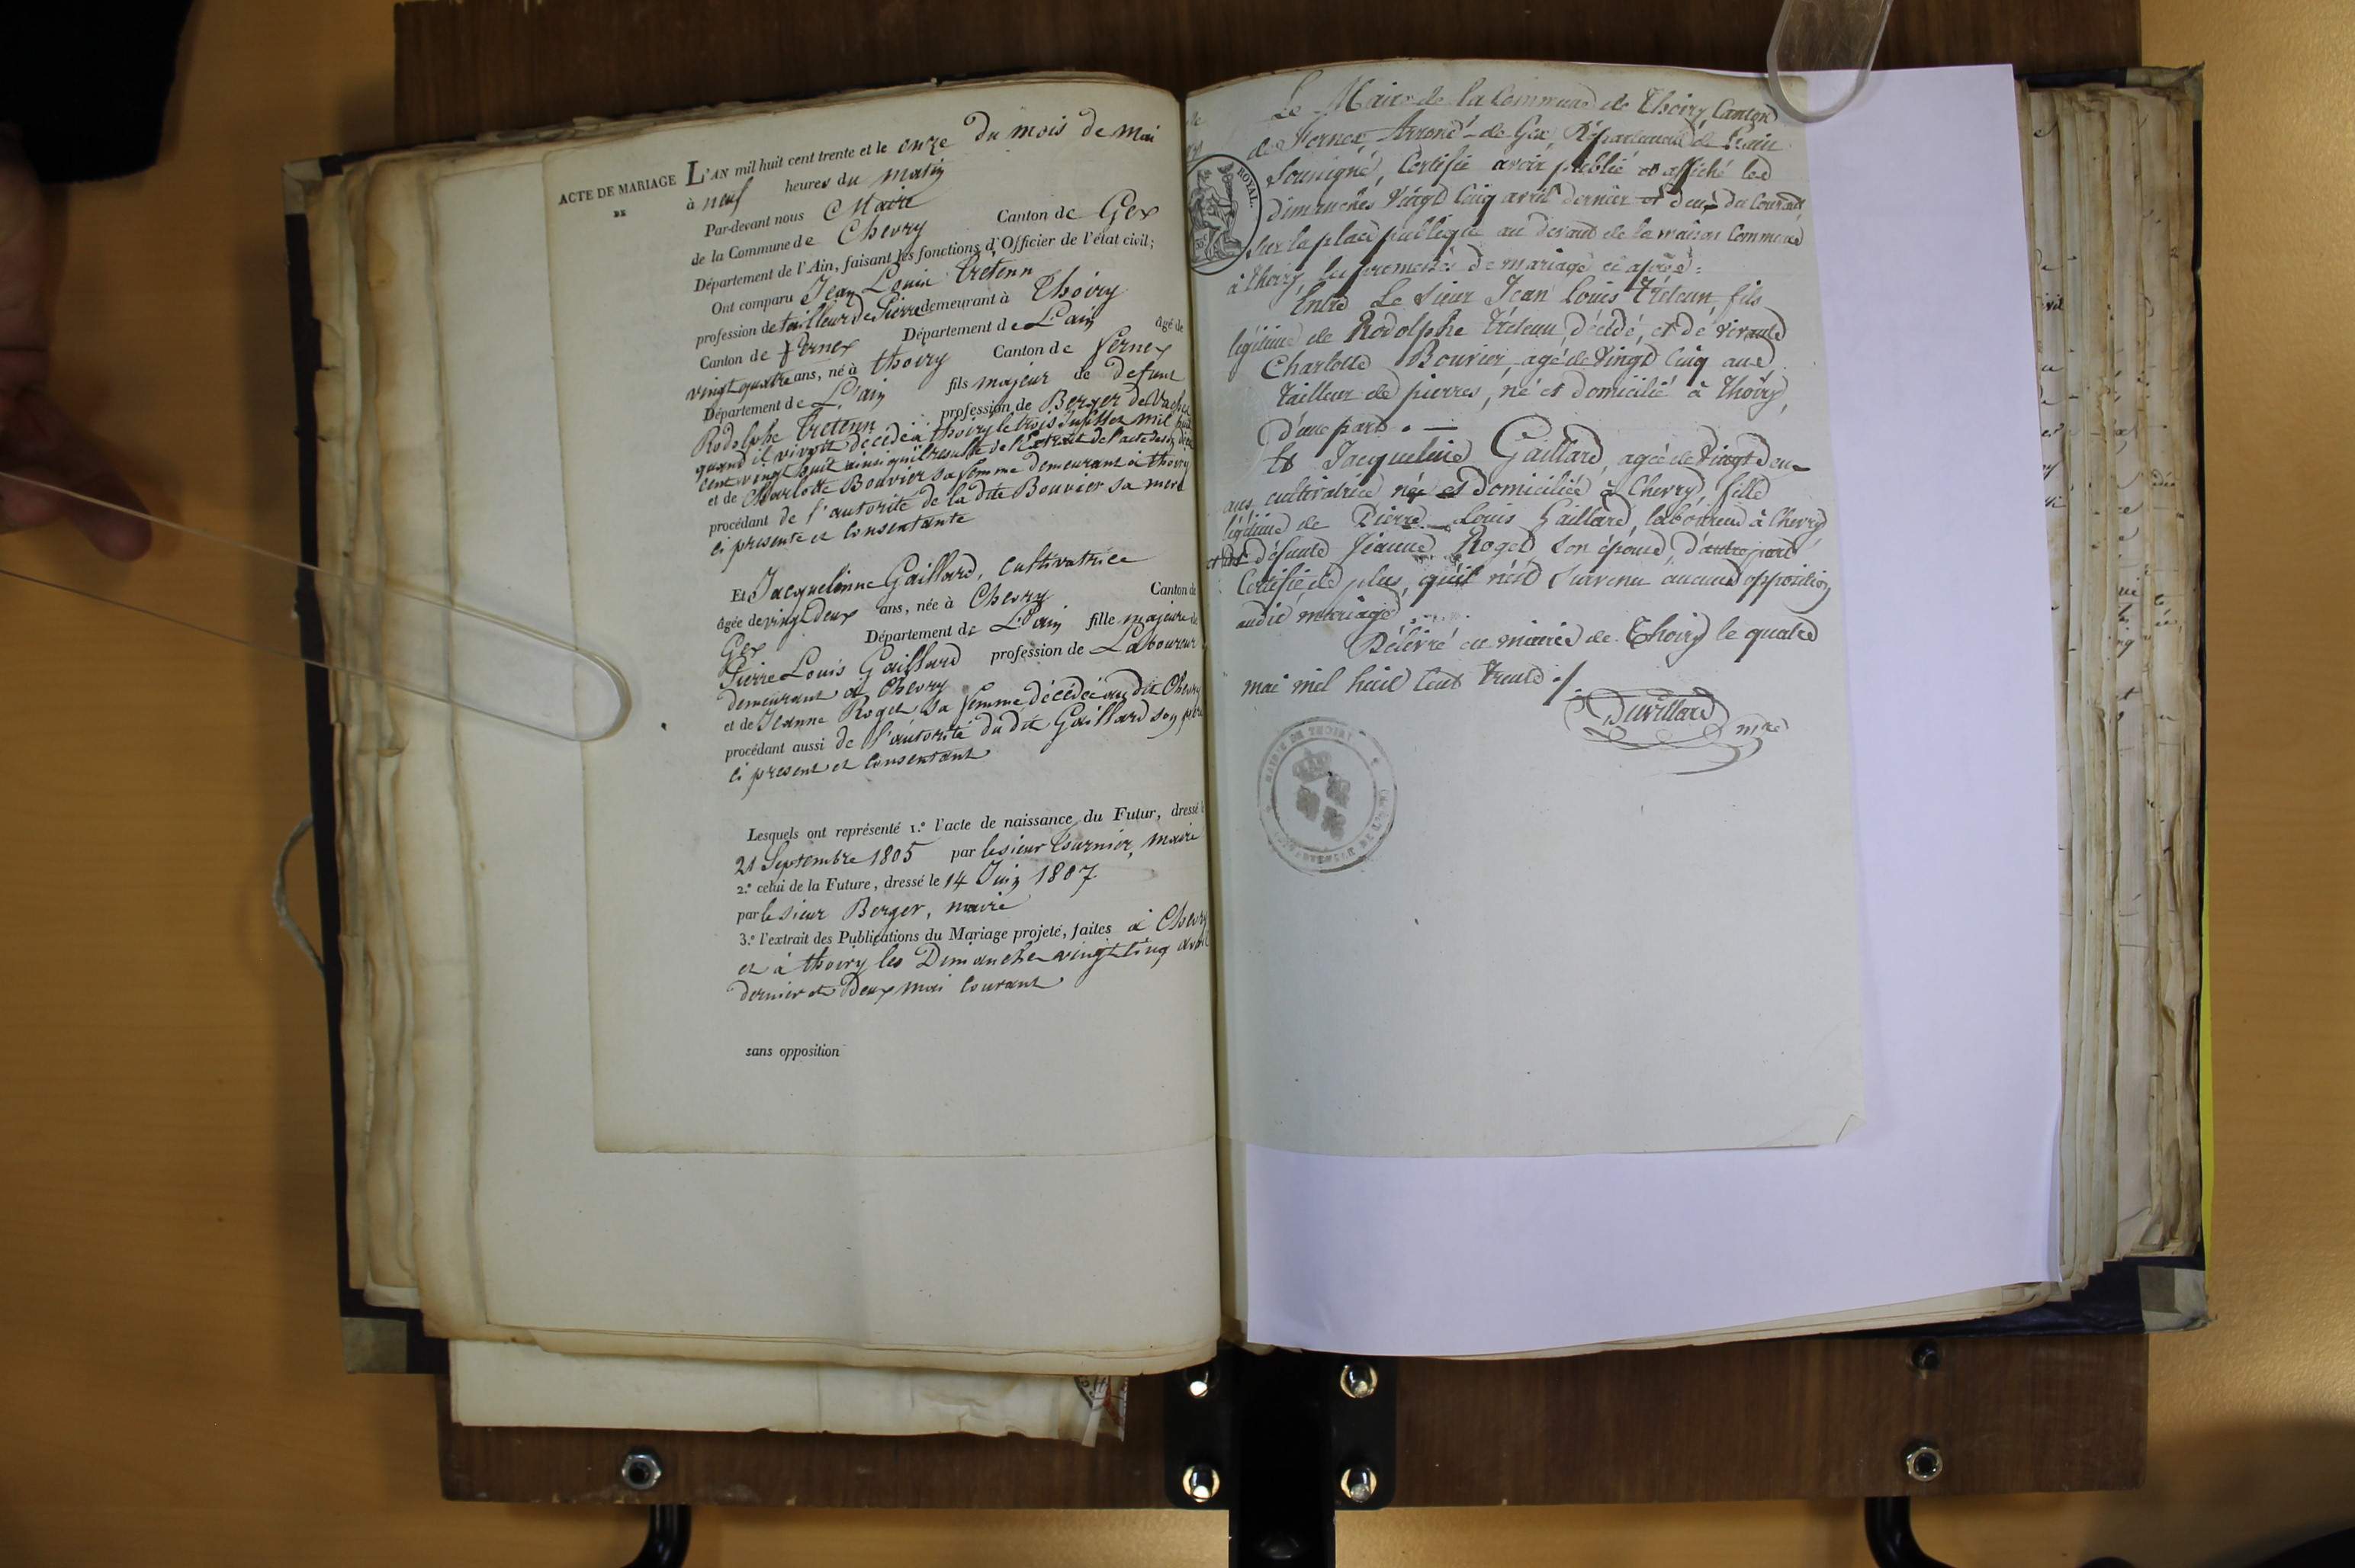 ACTE DE MARIAGE
DE
L'AN mil huit cent trente et le onze du mois de mai
à neuf heures du matin
Par-devant nous Maire
de la Commune de Chevry Canton de Gex
Département de l'Ain, faisant les fonctions d'Officier de l'état civil;
Ont comparu Jean Louis Tretenn
profession de tailleur de Pierre demeurant à Thoiry
Canton de Fernex Département de L'ain âgé de
vingt quatre ans, né à thoiry Canton de fernex
Département de L'ain fils majeur de defunt
Rodolphe Tretenn profession de Berger de Vaches
quand il vivoit décédé à thoiry le trois Juillet mil huit
cent vingt huit ainsi qu'il resulte de l'Extrait de l'acte de son décès
et de Charlotte Bouvier sa femme demeurant à thoiry
procédant de l'autorité de la dite Bouvier sa mere
ci presente et Consentante
Et Jacquelinne Gaillard, cultivatrice
âgée de vingt deux ans, née à Chevry Canton de
Gex Département de L'ain fille majeure de
Pierre Louis Gaillard profession de Laboureur
demeurant à Chevry
et de Jeanne Roget sa femme décédée au dit Chevry
procédant aussi de l'autorité du dit Gaillard son père
ci present et Consentant
Lesquels ont représenté 1.º l'acte de naissance du Futur, dressé le
21 Septembre 1805 par le sieur Tournier, maire
2.º celui de la Future, dressé le 14 Juin 1807.
par le sieur Berger, maire
3.º l'extrait des Publications du Mariage projeté, faites à Chevry
et à thoiry les Dimanche vingt cinq avril
dernier et Deux mai Courant
sans opposition
Le Maire de la Commune de Thoiry Canton
de Fernex, Arrond.t de Gex, Département de l'ain
Soussigné, Certifie avoir publié et affiché les
dimanches Vingt Cinq avril dernier et deux du Courant,
sur la place publique au devant de la maison Commune
à thoiry les promesses de mariage ci après:
Entre Le Sieur Jean louis Trétenn, fils
légitime de Rodolphe Trétenn, décédé, et de vivante
Charlotte Bouvier, agé de Vingt Cinq ans
tailleur de pierres, né et domicilié à thoiry,
d'une part. —
Et Jacqueline Gaillard, agée de Vingt deux
ans, cultivatrice née et Domiciliée à Chevry, fille
légitime de Pierre-Louis Gaillard, laboureur à Chevry
et de défunte Jeanne Roget Son épouse, d'autre part
Certifie de plus, qu'il n'est Survenu aucune opposition
audit mariage.
Délivré en mairie de Thoiry le quatre
mai mil huit Cent Trente ./.
Duvillard mre
ROYAL.
MAIRIE DE THOIRY